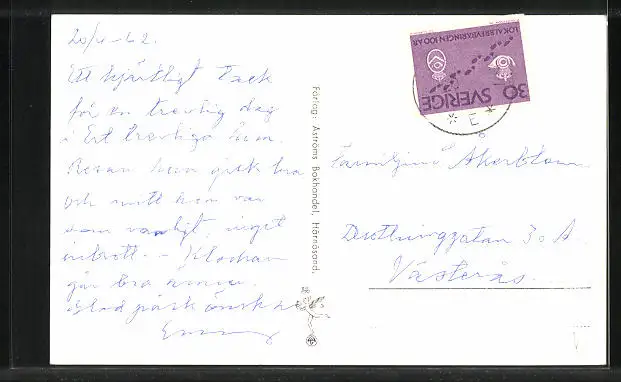 20/4-62.
Ett hjärtligt Tack
för en trevlig dag
i Ert trevliga hem.
Resan hem gick bra
och mitt hem var
som vanligt, inget
inbrott. - Klockan
går bra ännu.
Glad påsk önskar
Förlag: Åströms Bokhandel, Härnösand.
LOKALBREVBÄRINGEN 100 ÅR
30 SVERIGE
* E *
Familjen Åkerblom
Drottninggatan 30 A
Västerås.